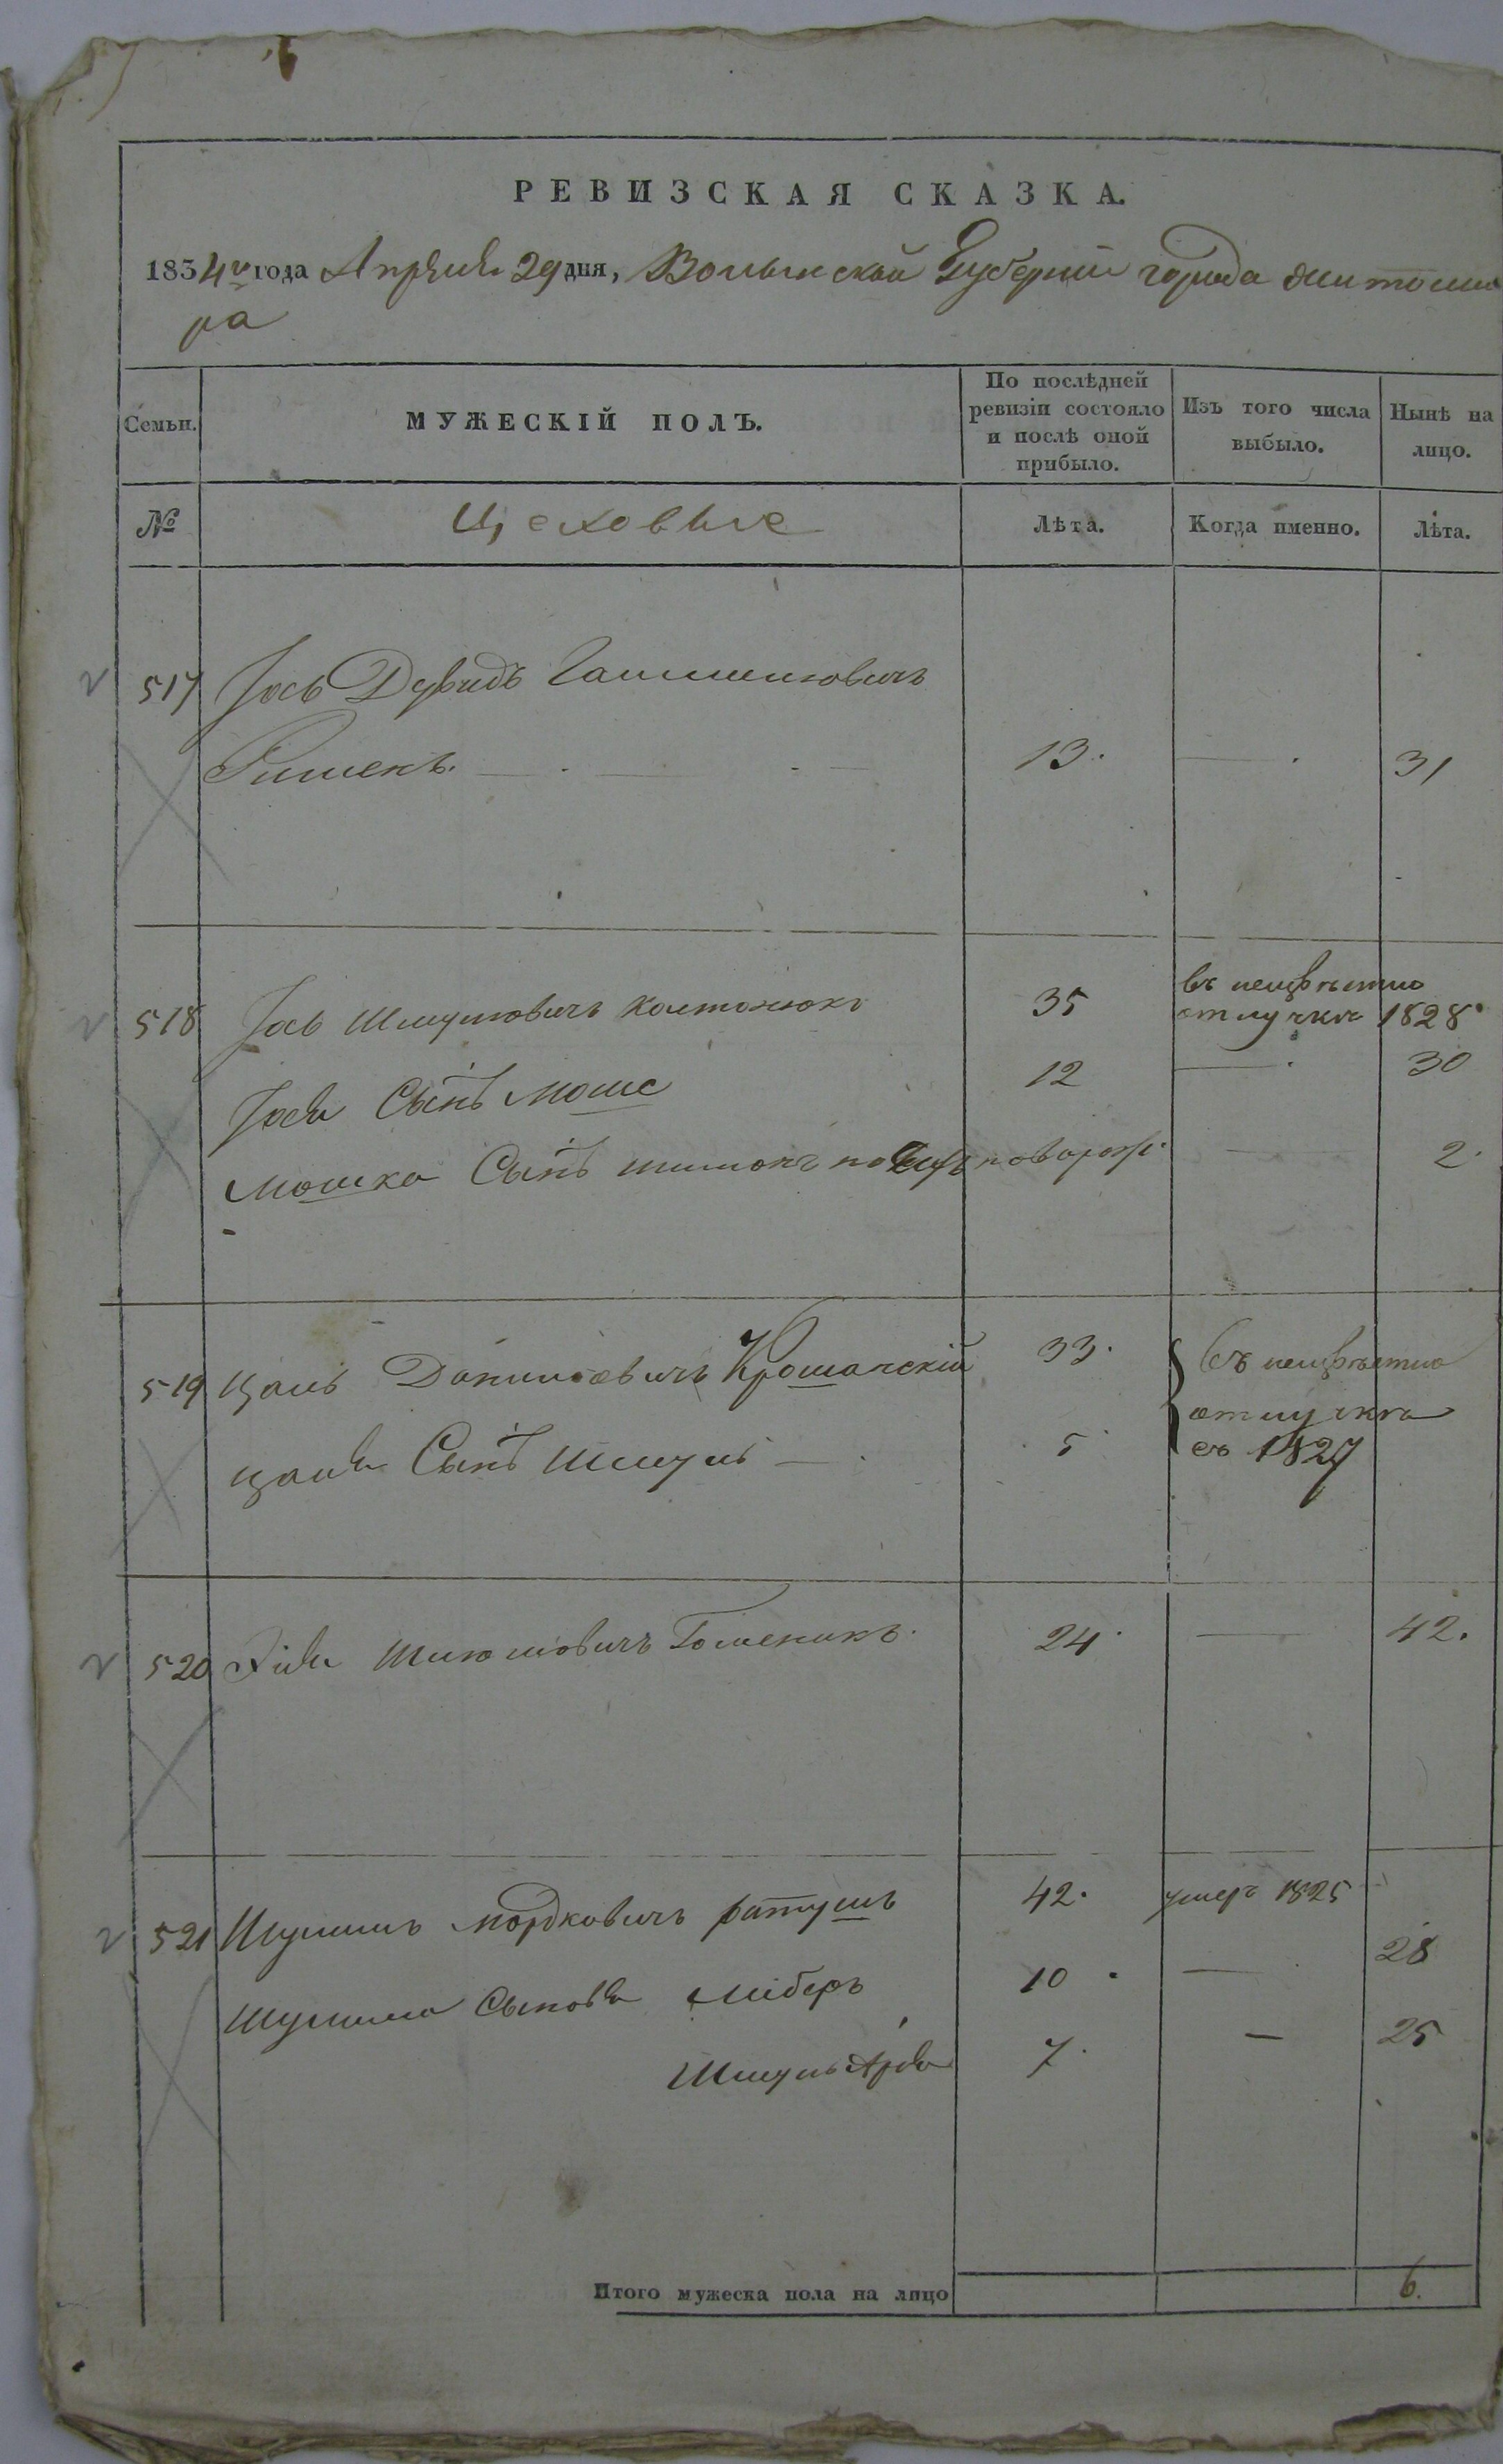 РЕВИЗСКАЯ СКАЗКА.
1834го года Апреля 29 дня, Волынской Губернии города Житоми
ра
Семьи.
МУЖЕСКІЙ ПОЛЪ.
По послѣдней
ревизіи состояло
и послѣ оной
прибыло.
Изъ того числа
выбыло.
Нынѣ на
лицо.
№
Цеховые
Лѣта.
Когда именно.
Лѣта.
517 Іось Дувидъ
13. 31
518 Іось Шмулювичъ Колтонюкъ 35 въ неизвѣстно
отлучкѣ 1828
Іося Сынъ Мошо 12 30
Мошка Сынъ Шимонъ новорож. 2.
519 Цаль Даниловичъ Крошанскій 33. въ неизвѣстно
отлучкѣ
Цаля Сынъ Шмуль 5 съ 1827
520 24 42.
521 Шулимъ Мордковичъ Ратушъ 42. умеръ 1825
Шулима Сыновья Либеръ 10 28
Шмуль Арья 7. 25
Итого мужеска пола на лицо 6.